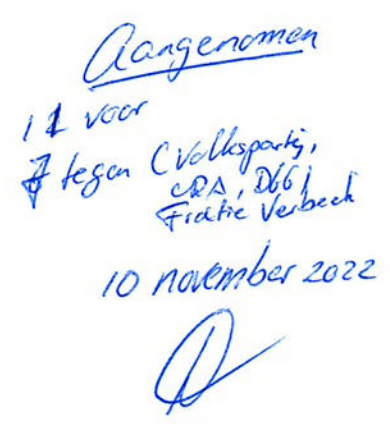 Aangenomen
11 voor
7 tegen (Volkspartij,
CDA, D66,
Fractie Verbeek
10 november 2022